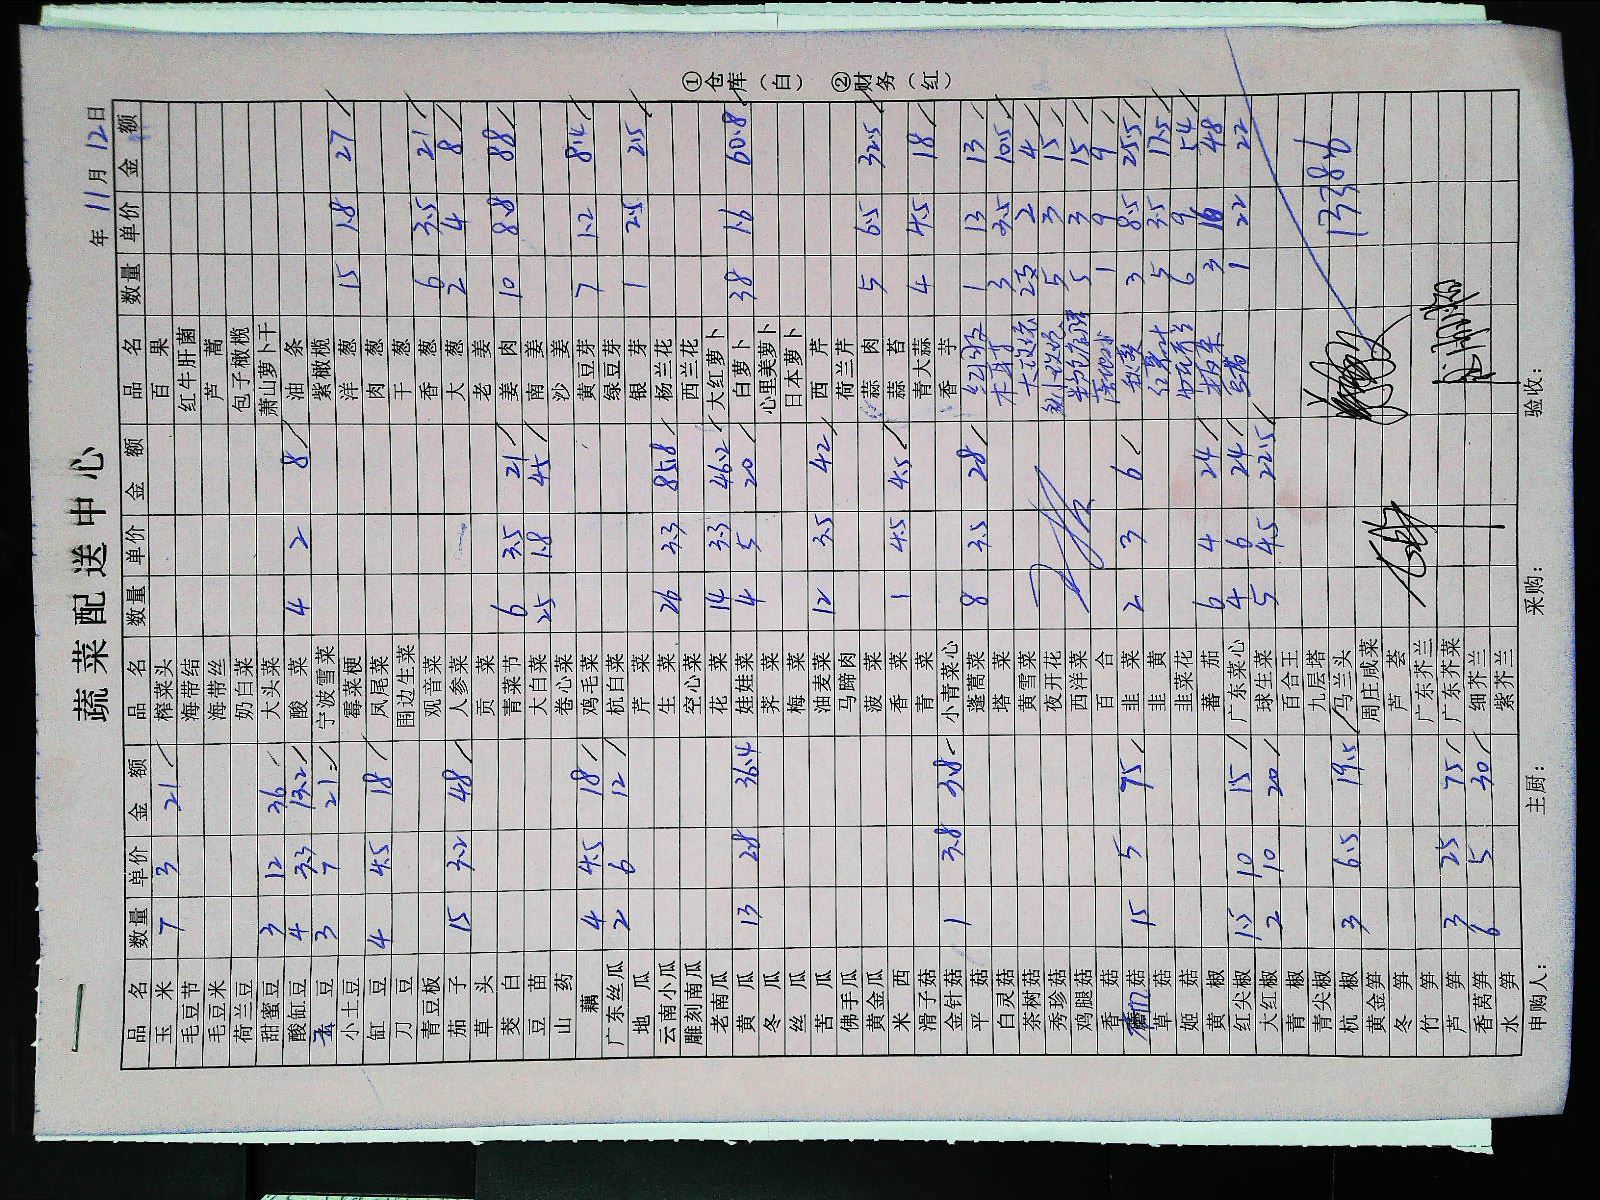 蔬菜配送中心
年 11月 12日
品名 数量 单价 金额 品名 数量 单价 金额 品名 数量 单价 金额
玉米 7 3 21 榨菜头 百果
毛豆节 海带结 红牛肝菌
毛豆米 海带丝 芦蒿
荷兰豆 奶白菜 包子橄榄
甜蜜豆 3 12 36 大头菜 萧山萝卜干
酸缸豆 4 3.3 13.2 酸菜 4 2 8 油条
豆 3 7 21 宁波雪菜 紫橄榄
小土豆 霉菜梗 洋葱 15 1.8 27
缸豆 4 4.5 18 凤尾菜 肉葱
刀豆 围边生菜 干葱
青豆板 观音菜 香葱 6 3.5 21
茄子 15 3.2 48 人参菜 大葱 2 4 8
草头 贡菜 老姜
茭白 青菜节 6 3.5 21 姜肉 10 8.8 88
豆苗 大白菜 25 1.8 45 南姜
山药 卷心菜 沙姜
藕 4 4.5 18 鸡毛菜 黄豆芽 7 1.2 8.4
广东丝瓜 2 6 12 杭白菜 绿豆芽
地瓜 芹菜 银芽 1 2.5 2.5
云南小瓜 生菜 26 3.3 85.8 杨兰花
雕刻南瓜 空心菜 西兰花
老南瓜 花菜 14 3.3 46.2 大红萝卜
黄瓜 13 2.8 36.4 娃娃菜 4 5 20 白萝卜 38 1.6 60.8
冬瓜 荠菜 心里美萝卜
丝瓜 梅菜 日本萝卜
苦瓜 油麦菜 12 3.5 42 西芹
佛手瓜 马蹄肉 荷兰芹
黄金瓜 菠菜 蒜肉 5 6.5 32.5
米西 香菜 1 4.5 4.5 蒜苔
滑子菇 青菜 青大蒜 4 4.5 18
金针菇 1 3.8 3.8 小青菜心 香芋
平菇 蓬蒿菜 8 3.5 28 1 13 13
白灵菇 塔菜 木耳菜 3 3.5 10.5
茶树菇 黄雪菜 2 4
秀珍菇 夜开花 5 3 15
鸡腿菇 西洋菜 5 3 15
香菇 百合 1 9 9
菇 15 5 75 韭菜 2 3 6 秋葵 3 8.5 25.5
草菇 韭黄 5 3.5 17.5
姬菇 韭菜花 6 9 54
黄椒 蕃茄 6 4 24 3 16 48
红尖椒 1.5 10 15 广东菜心 4 6 24 1 22 22
大红椒 2 10 20 球生菜 5 4.5 22.5
青椒 百合王
青尖椒 九层塔
杭椒 3 6.5 19.5 马兰头 1338.6
黄金笋 周庄咸菜
冬笋 芦荟
竹笋 广东芥兰
芦笋 3 25 75 广东芥菜
香莴笋 6 5 30 细芥兰
水笋 紫芥兰
申购人： 主厨： 采购： 验收：
①仓库（白） ②财务（红）